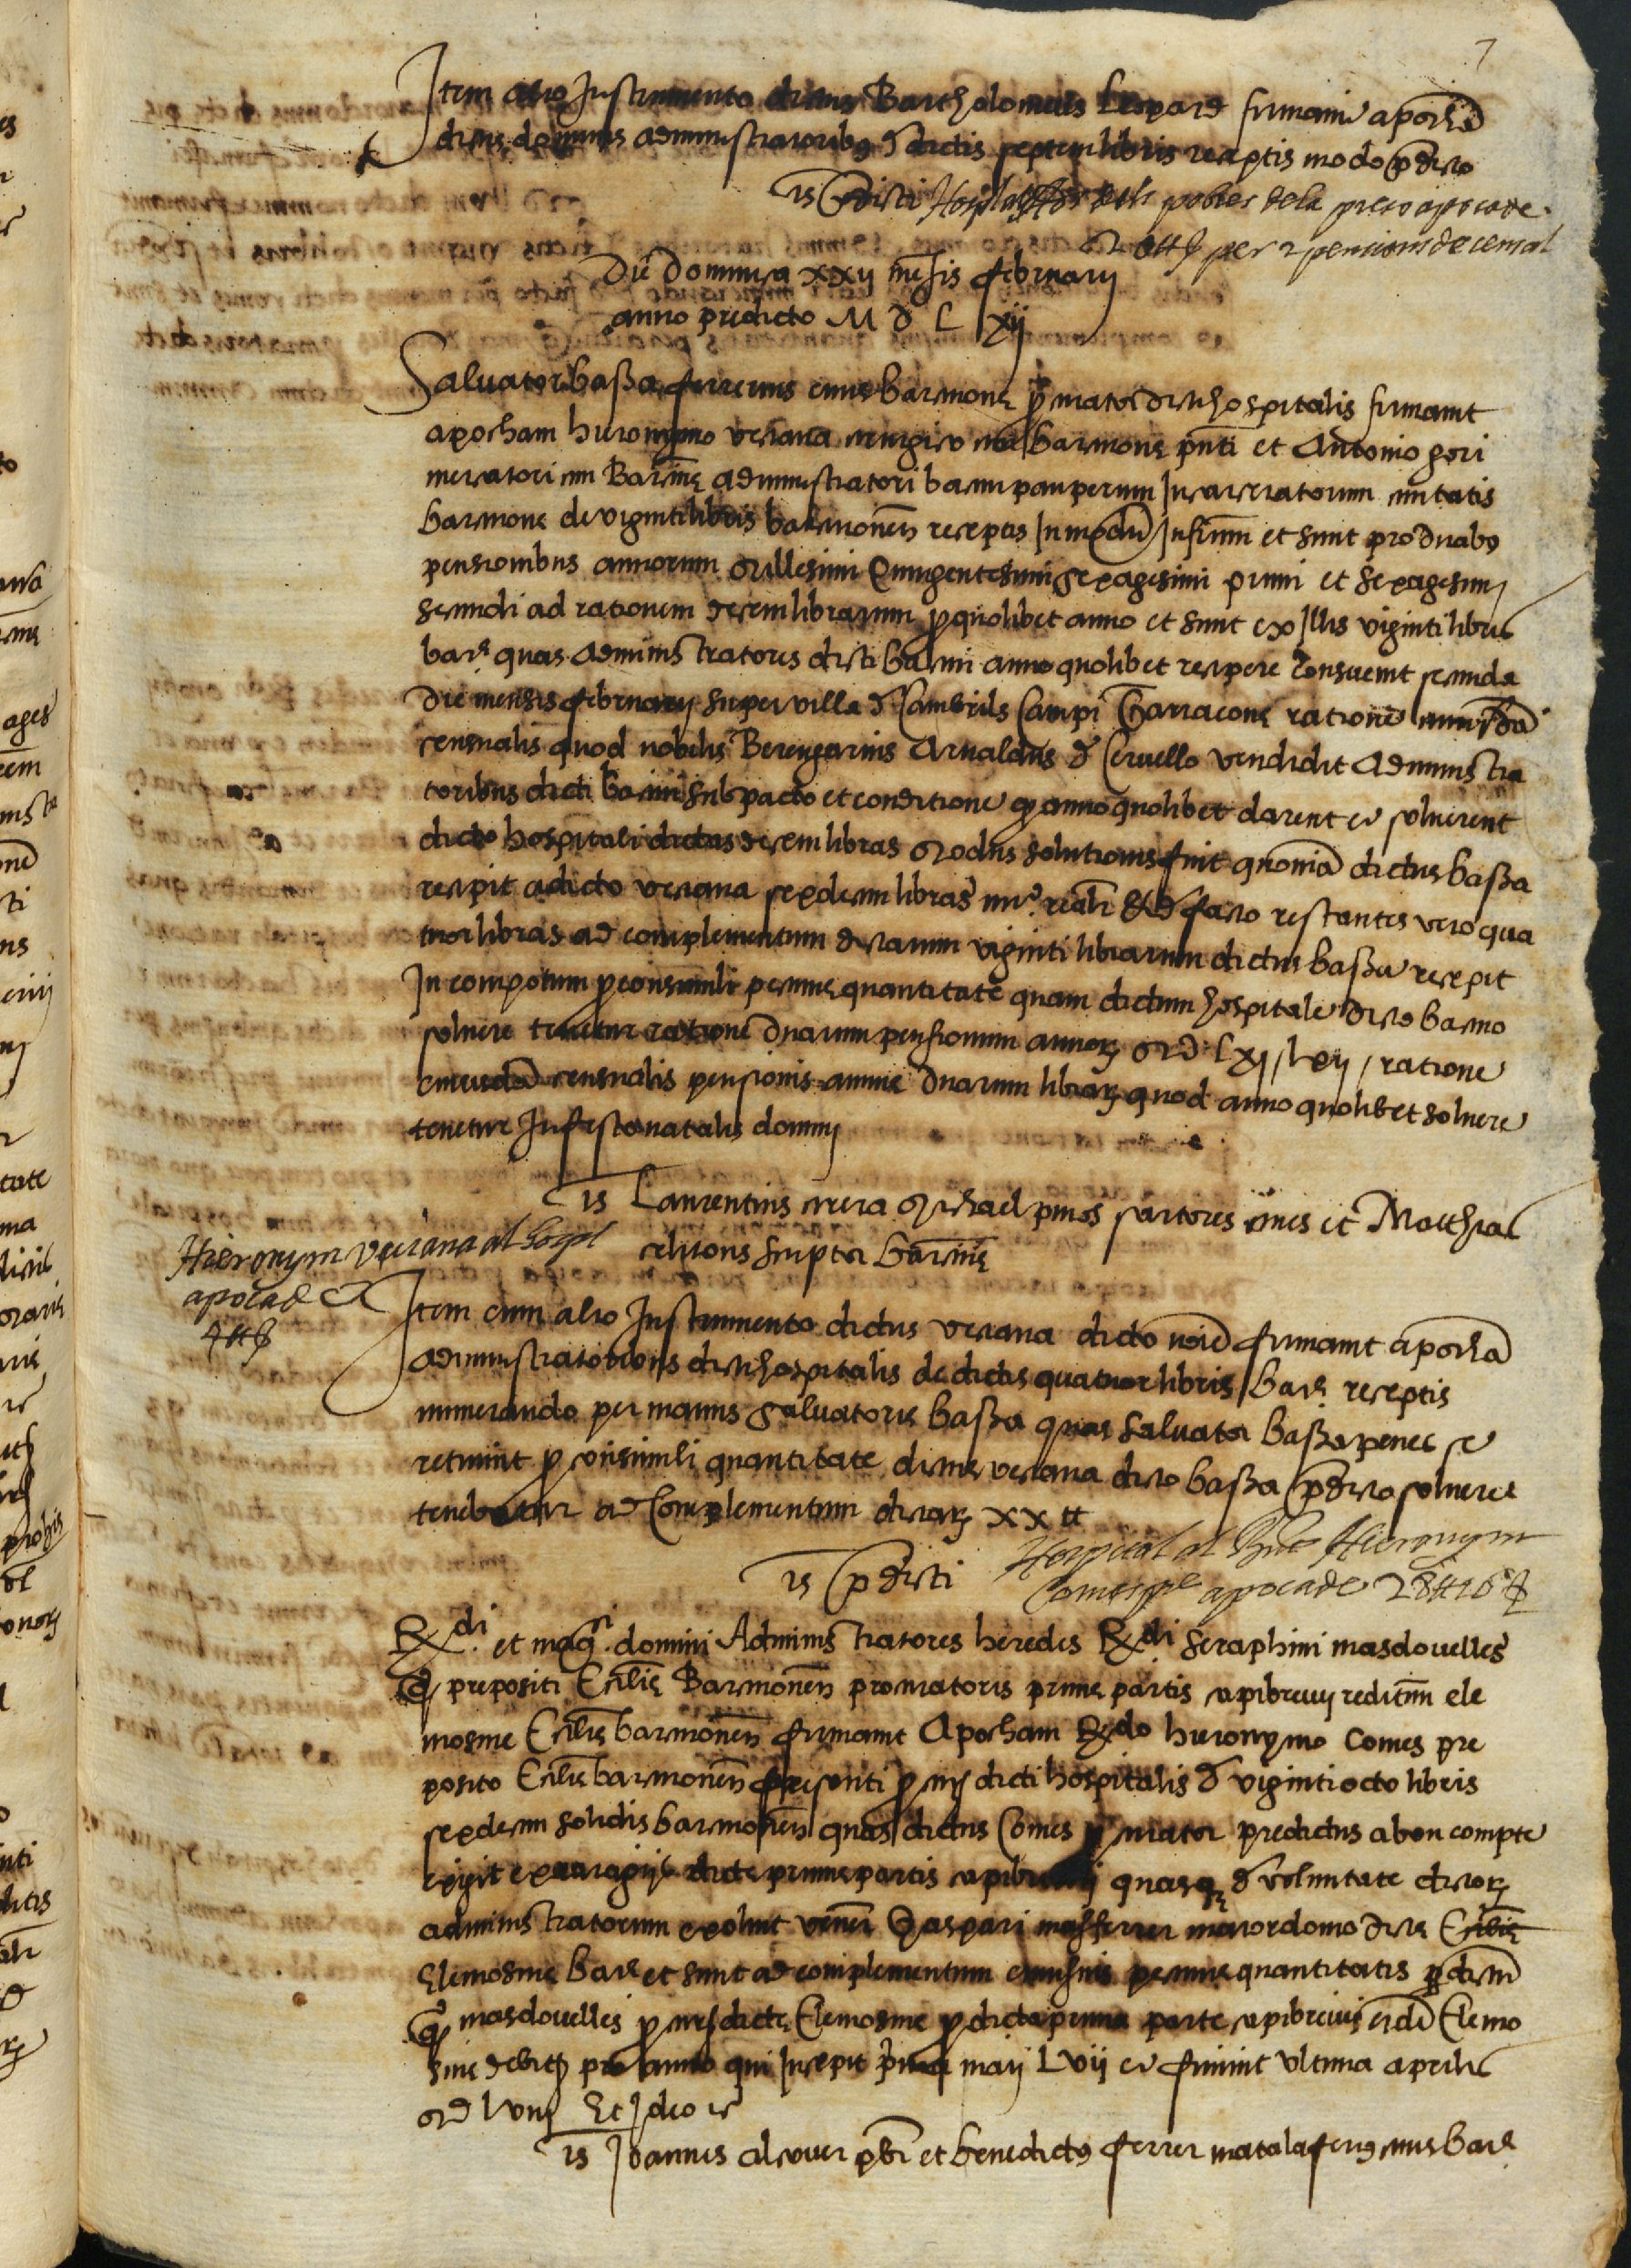 7
Item alio Instrumento dictus Bartholomeus Leopard firmavit apocha
dictis dominis administratoribus de dictis septem libris receptis modo predicto
ts predicti Hospital als pobres de la preso apoca de
per 2 pensions de censal
Die dominica xxij mensis february
anno predicto M D L xij
Salvator bassa ferrerius civis barcinone procurator dicti hospitalis firmavit
apocham hieronymo veciana cirurgico civi barcinone pnti et Antonio gori
mercatori civi Barcine administratori bacini pauperum Incarceratorum civitatis
barcinone de viginti libris barcinonen receptis In modum Infrum et sunt pro duabus
pensionibus annorum Millesimi Quingentesimi sexagesimi primi et sexagesimi
secundi ad rationem decem librarum pro quolibet anno et sunt ex Illis viginti libris
barc quas administratores dicti bacini anno quolibet recipere consuevit secunda
die mensis february super villa de Cambrils Campi Tarracone ratione cuiusdam
censualis quod nobilis Berengarius Arnaldus de Cervello vendidit Administra
toribus dicti bacini sub pacto et conditione q anno quolibet darent et solverent
dicto hospitali dictas decem libras Modus solutionis fuit quoniam dictus bassa
recipit a dicto veciana sexdecim libras nu. reali et de facto restantes vero qua
tuor libras ad complementum dictarum viginti librarum dictus bassa recepit
In compotum pro consimili pecunie quantitate quam dictum hospitale dicto bacino
solvere tenetur ratione duarum pensionum annor MD Lxj / lxij / ratione
cuiusdam censualis pensionis annue duarum librar quod anno quolibet solvere
tenetur In festo natalis domini
ts Laurentius Michael pinos sartores cives et Matthias
celitons scriptor barcine
Hieronym veciana al hospl
apoca de
4 ll
Item cum alio Instrumento dictus veciana dicto noie firmavit apocha
administratoribus dicti hospitalis de dictis quatuor libris barc receptis
numerando per manus Salvatoris bassa quas Salvator bassa penes se
retinuit pro consimili quantitate dictus veciana dicto bassa predicto solvere
tenebatur ad Complementum dictar xx ll
ts predicti
Hospital al Rnt Hieronym
Comes ppt apoca de 28 ll 16 s
Rdi et magci domini Administratores heredes Rdi Seraphini masdovelles
q prepositi Ecclie Barcinonen procuratoris prime partis capibrevij reditum ele
mosine Ecclie barcinonen firmavit Apocham Rdo hieronymo Comes pre
posito Ecclie barcinonen presenti pror dicti hospitalis de viginti octo libris
sexdecim solidis barcinonen quas dictus Comes procurator predictus a bon compte
exigit ex dicte prime partis capibrevij quasq de voluntate dictor
administratorum exolvit veneri Gaspari masferrer maiordomo dicte Ecclie
Elemosine barc et sunt ad complementum cuiusvis pecunie quantitatis p dictum
q masdovelles dicte Elemosine pro dicta prima parte capibrevis eidem Elemo
sine debite pro anno qui Incepit prima maij Lvij et finivit ultima aprilis
MD lviij Et Ideo etc
ts Joannes alcover pbr et benedictus ferrer matalaferus civis barc